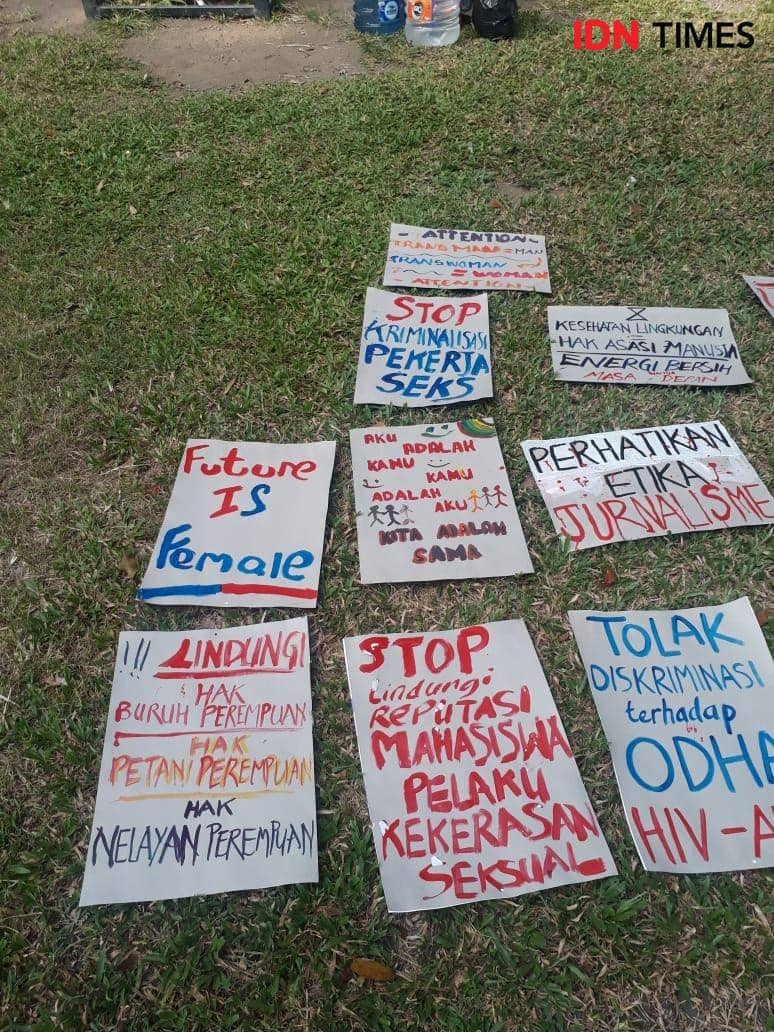 IDN TIMES
- ATTENTION -
TRANSWOMAN
= WOMAN
- ATTENTION -
STOP
KRIMINALISASI
PEKERJA
SEKS
KESEHATAN LINGKUNGAN
=
HAK ASASI MANUSIA
ENERGI BERSIH
MASA DEPAN
AKU
ADALAH
KAMU
KAMU
ADALAH
AKU
KITA ADALAH
SAMA
PERHATIKAN
ETIKA
JURNALISME
Future
IS
Female
!!! LINDUNGI
HAK
BURUH PEREMPUAN
HAK
PETANI PEREMPUAN
HAK
NELAYAN PEREMPUAN
STOP
Lindungi
REPUTASI
MAHASISWA
PELAKU
KEKERASAN
SEKSUAL
TOLAK
DISKRIMINASI
terhadap
ODHA
HIV-A